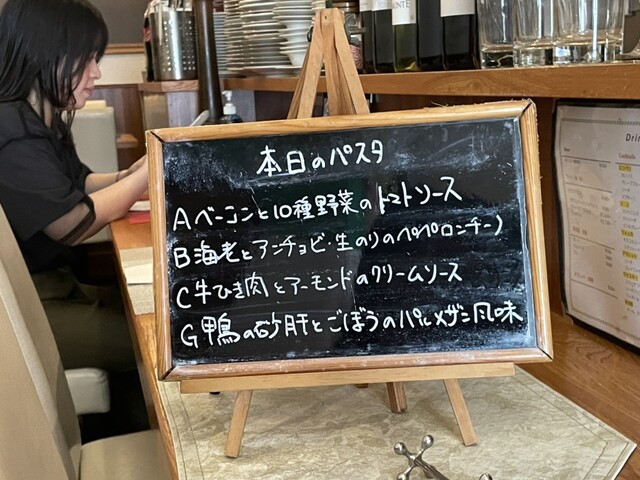 本日のパスタ
A ベーコンと10種野菜のトマトソース
B 海老とアンチョビ・生のりのペペロンチーノ
C 牛ひき肉とアーモンドのクリームソース
G 鴨の砂肝とごぼうのパルメザン風味
Drin